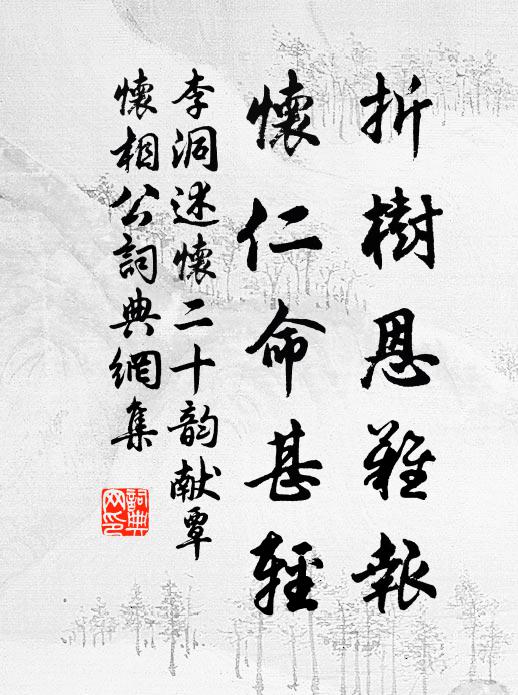 折樹恩難報
懷仁命甚輕
李洞述懷二十韵献覃
懷相公詞典網集
詞典
网印